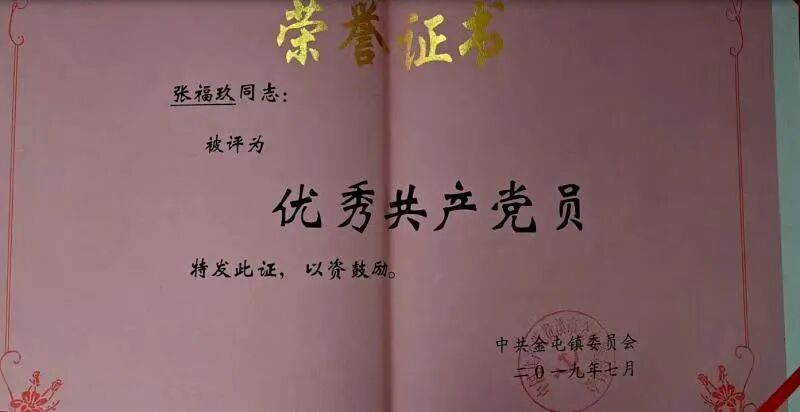 荣誉证书
张福玖同志：
被评为
优秀共产党员
特发此证，以资鼓励。
中共金屯镇委员会
二〇一九年七月